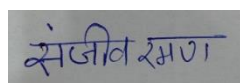 संजीव रमण